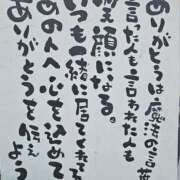 ありがとうは魔法の言葉
言った人も言われた人も
笑顔になる。
いつも一緒に居てくれる
あの人へ心を込めて
ありがとうを伝えよう